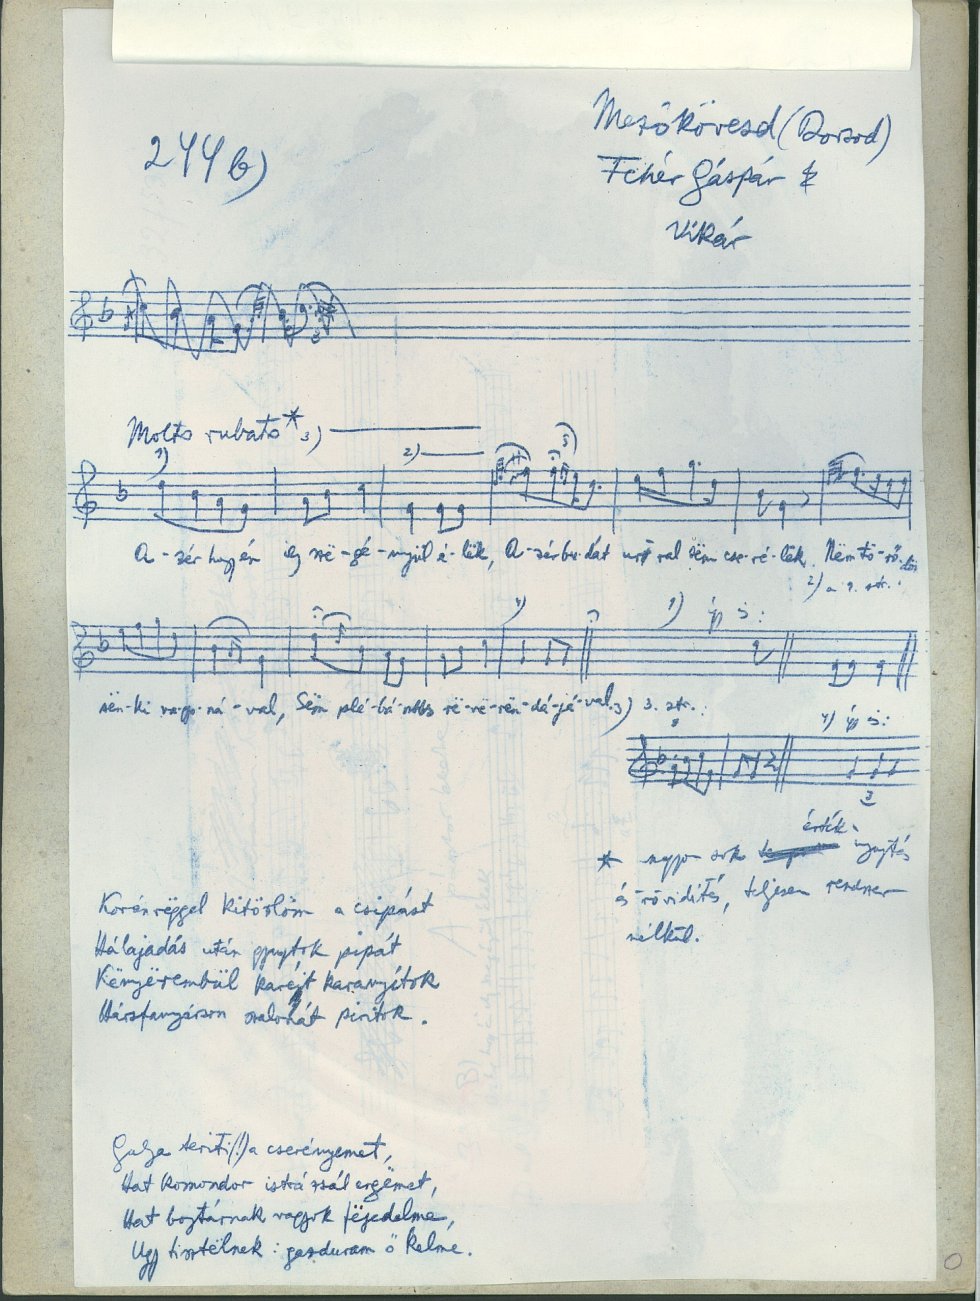 244 b)
Mezőkövesd (Borsod)
Fehér Gáspár
Vikár
Molto rubato * 3)
1) 2)
A-zér hogy én így sze-gé-nyül é-lëk, A-zér bu-dát úrral sëm cse-ré-lëk. Nëm tö-rő-döm
2) a 2. str.:
4) 1) így is:
sën-ki va-gyo-ná-val, Sëm plé-bá-nus rë-ve-rën-dá-já-val. 3) 3. str.:
4) így is:
3
érték-
* nagyon sok nyujtás
és rövidítés, teljesen rendszer
nélkül.
Korán rëggel kitörlöm a csipást
Hálaadás után gyujtok pipát
Kënyërembül karéjt kanyarítok
Hársfanyárson szalonát pirítok.
Gulya terití(!) a cserényemet,
Hat komondor istrázsál engëmet,
Hat bojtárnak vagyok fëjedelme,
Ugy tisztëlnek: gazduram ő kelme.